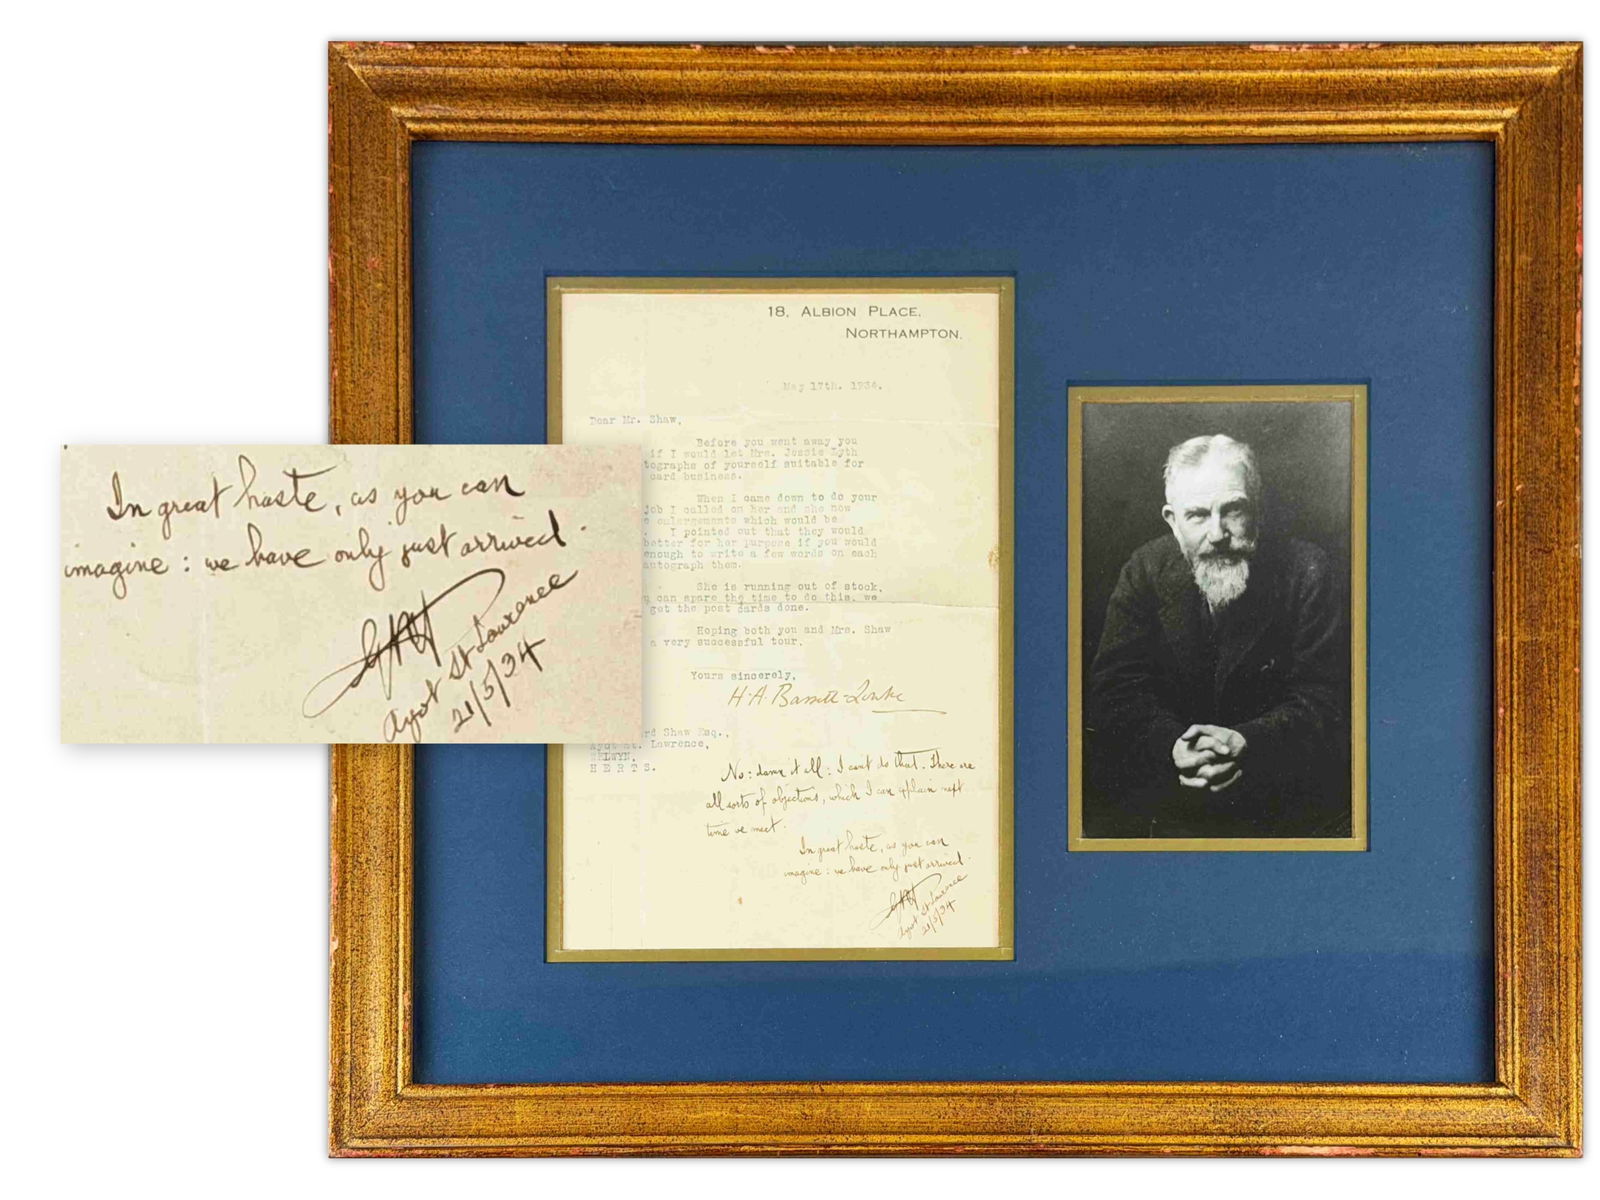 18, ALBION PLACE,
NORTHAMPTON.
May 17th. 1934.
Dear Mr. Shaw,
Before you went away you
if I would let Mrs. Jessie Lyth
tographs of yourself suitable for
card business.
When I came down to do your
job I called on her and she now
enlargements which would be
. I pointed out that they would
better for her purpose if you would
enough to write a few words on each
autograph them.
She is running out of stock,
can spare the time to do this, we
get the post cards done.
Hoping both you and Mrs. Shaw
a very successful tour.
Yours sincerely,
H.A. Barrett
rd Shaw Esq.,
Ayot St. Lawrence,
WELWYN,
HERTS.
No: damn it all: I cant do that. There are
all sorts of objections, which I can explain next
time we meet.
In great haste, as you can
imagine: we have only just arrived.
Ayot St Lawrence
21/5/34
In great haste, as you can
imagine : we have only just arrived.
Ayot St Lawrence
21/5/34